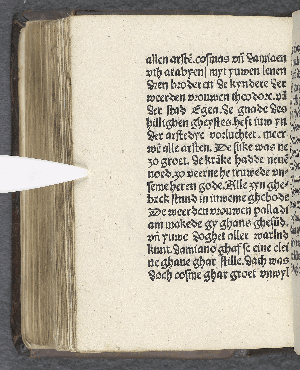 allen arstē. cosmas vn̄ damiaen
vth arabyen / myt yuwen lenen
dren broderen de kyndere der
weerden vrouwen theodore. vā
der stad Egea. de gnade des
hillighen gheystes heft iuw yn
der arstedye vorluchtet. meer
wē alle arsten. De sike was ne
so groet. de krāke hadde nene
noed. so veerne he truwede vn̄
seme heren gode. Alle syn ghe-
beck stund in iuweme ghebode
De weerden vrouwen palladi
am makede gy ghans ghesūd.
vn̄ yuwe doghet aller warlnd
kunt. damiano ghaf se eine clei
ne ghaue ghar stille. dach was
doch cosme ghar groet vnwyl